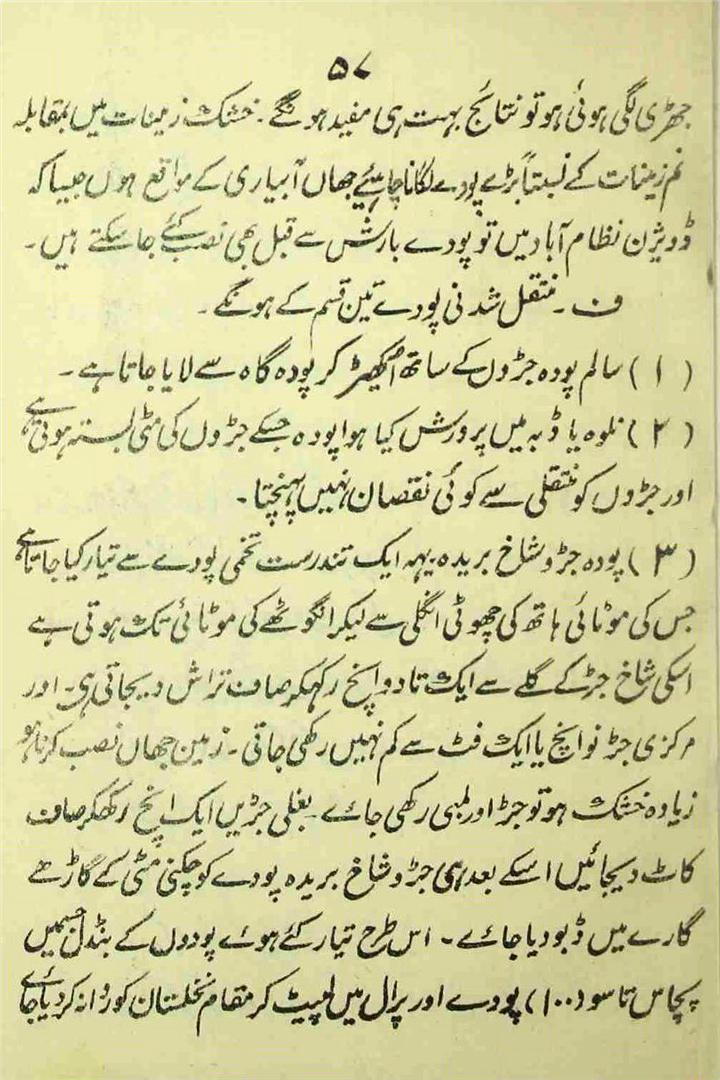 ۵۷
جھڑی لگی ہوئی ہو تو نتائج بہت ہی مفید ہونگے ۔ خشک زمینات میں بمقابلہ
نم زمینات کے نسبتاً بڑے پودے لگانا چاہیئے جہاں آبیاری کے مواقع ہوں جیسا کہ
ڈویژن نظام آباد میں تو پودے بارش سے قبل بھی نصب کئے جا سکتے ہیں ۔
ف ۔ منتقل شدنی پودے تین قسم کے ہونگے ۔
( ۱ ) سالم پودہ جڑوں کے ساتھ اُکھیڑ کر پودہ گاہ سے لایا جاتا ہے ۔
( ۲ ) نلوہ یا ڈبہ میں پرورش کیا ہوا پودہ جسکے جڑوں کی مٹی بستہ ہوتی ہے
اور جڑوں کو منتقلی سے کوئی نقصان نہیں پہنچتا ۔
( ۳ ) پودہ جڑ و شاخ بریدہ یہہ ایک تندرست تخمی پودے سے تیار کیا جاتا ہے
جس کی موٹائی ہاتھ کی چھوٹی انگلی سے لیکر انگوٹھے کی موٹائی تک ہوتی ہے
اسکی شاخ جڑ کے گلے سے ایک تا دو انچ رکھکر صاف تراش دیجاتی ہی ۔ اور
مرکزی جڑ نو انچ یا ایک فٹ سے کم نہیں رکھی جاتی ۔ زمین جہاں نصب کرنا ہو
زیادہ خشک ہو تو جڑ اور لمبی رکھی جائے ۔ بغلی جڑیں ایک انچ رکھکر صاف
کاٹ دیجائیں اسکے بعد ہی جڑ و شاخ بریدہ پودے کو چکنی مٹی کے گاڑھے
گارے میں ڈبو دیا جائے ۔ اس طرح تیار کئے ہوئے پودوں کے بنڈل جسمیں
پچاس تا سو (۱۰۰) پودے اور پرال میں لپیٹ کر مقام نخلستان کو روانہ کر دیا جائے